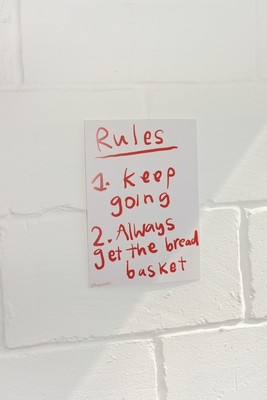 Rules
1. Keep
going
2. Always
get the bread
basket